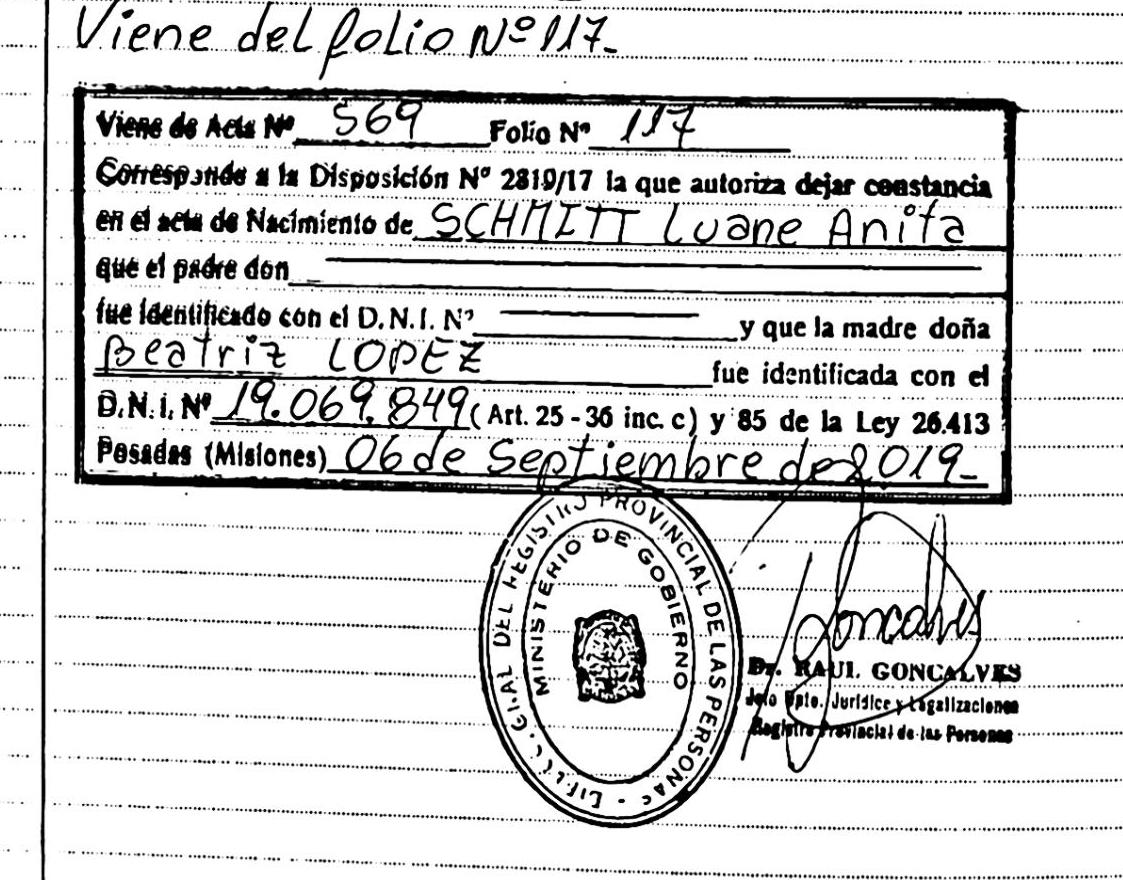 Viene del folio Nº 117.-
Viene de Acta Nº 569 Folio Nº 117
Corresponde a la Disposición Nº 2819/17 la que autoriza dejar constancia
en el acta de Nacimiento de SCHMITT Luane Anita
que el padre don ————
fue identificado con el D.N.I. Nº ———— y que la madre doña
Beatriz LOPEZ fue identificada con el
D.N.I. Nº 19.069.849 (Art. 25 - 36 inc. c) y 85 de la Ley 26.413
Posadas (Misiones) 06 de Septiembre de 2.019-
GRAL DEL REGISTRO PROVINCIAL DE LAS PERSONAS
MINISTERIO DE GOBIERNO
Goncalves
Dr. RAUL GONCALVES
Jefe Dpto. Jurídico y Legalizaciones
Registro Provincial de las Personas